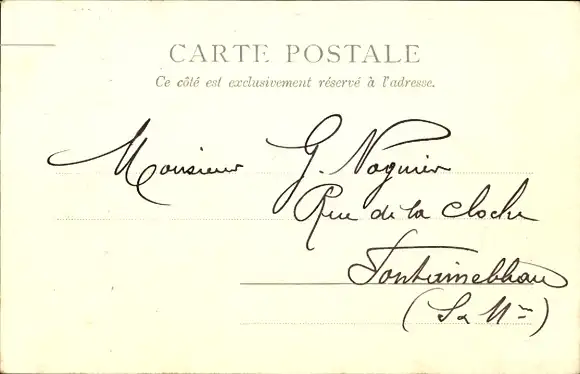 CARTE POSTALE
Ce côté est exclusivement réservé à l'adresse.
Monsieur G. Nogmier
Rue de la Cloche
Fontainebleau
(S & Mne)